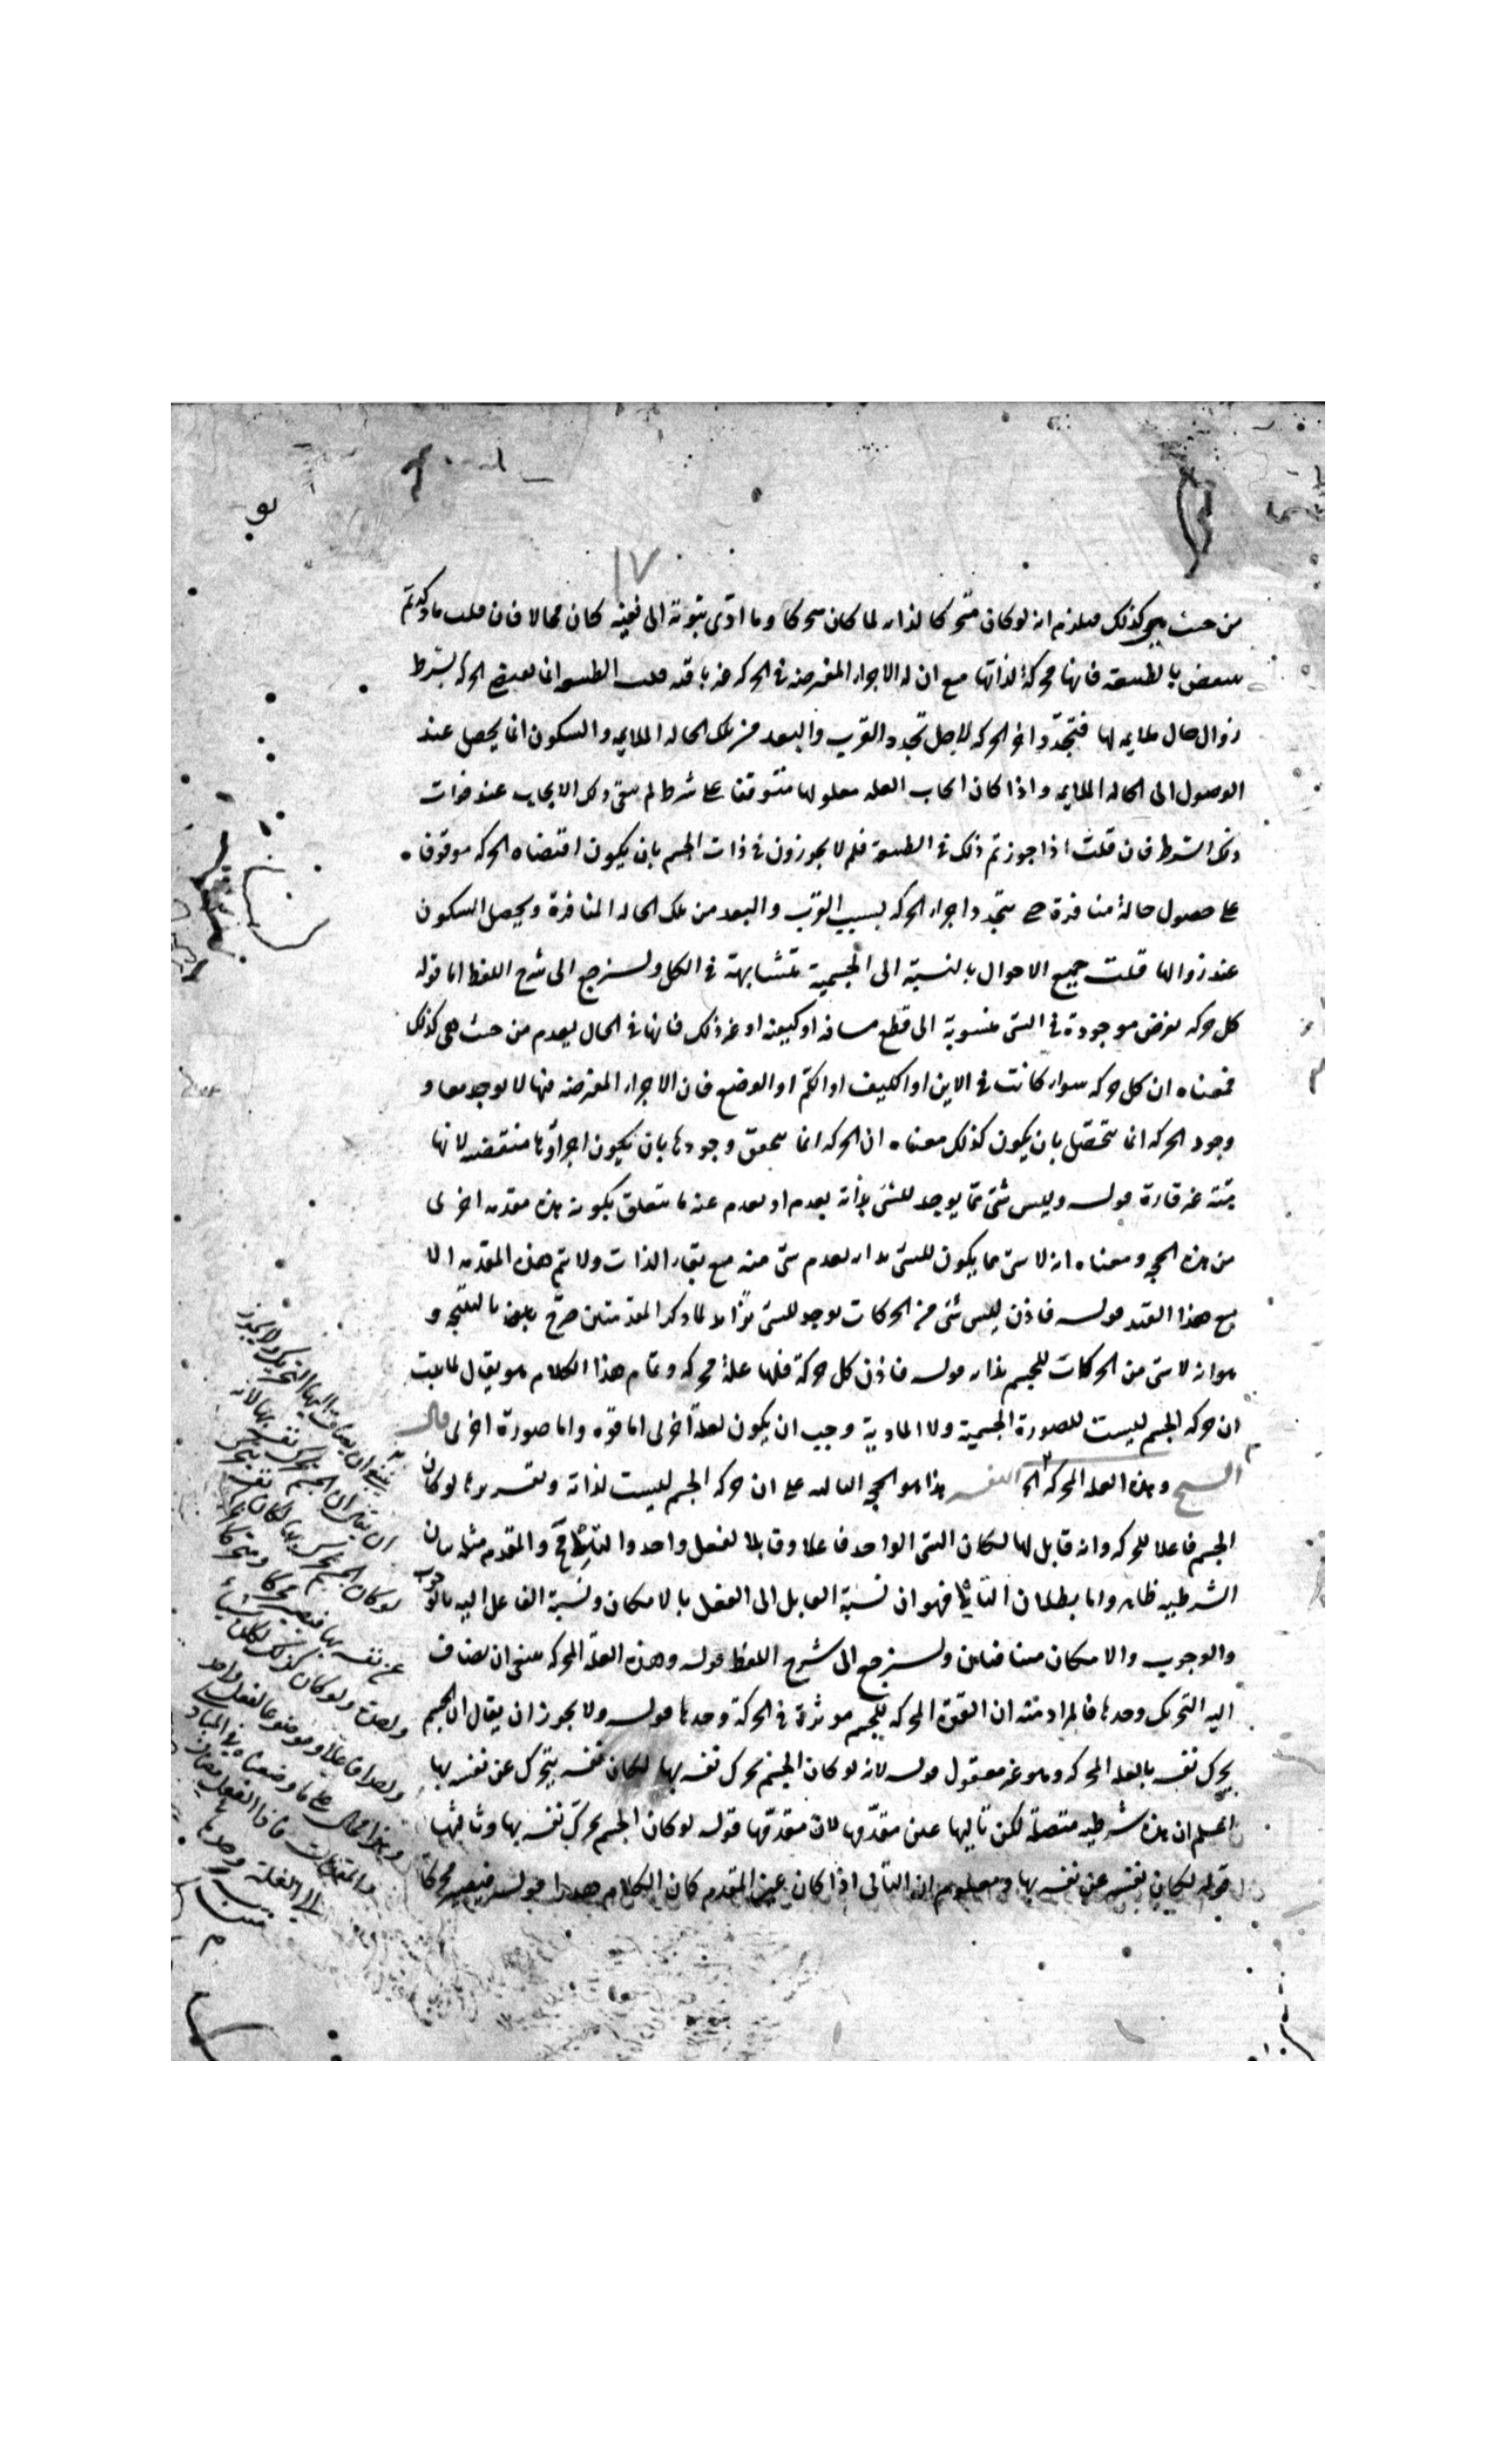 ١٧
من حيث هي كذلك فيلزم انه لو كان متحركا لذاته لما كان متحركا وما ادى ثبوته الى نفيه كان محالا فان قلت ما ذكرتم
ينتقض بالطبيعة فانها محركة لذاتها مع ان الاجزاء المفترضة في الحركة غير باقية قلت الطبيعة انما تقتضي الحركة بشرط
زوال حال ملايمه لها فتجدد اجزاء الحركه لاجل تجدد القرب والبعد من تلك الحاله الملايمه والسكون انما يحصل عند
الوصول الى الحاله الملايمه واذا كان ايجاب العله معلولها متوقفا على شرط لم يبق ذلك الايجاب عند فوات
ذلك الشرط فان قلت اذا جوزتم ذلك في الطبيعة فلم لا يجوزون في ذات الجسم بان يكون اقتضاه الحركه موقوفا
على حصول حالة منافرة حتى يتجدد اجزاء الحركه بسبب القرب والبعد من تلك الحاله المنافرة ويحصل السكون
عند زوالها قلت جميع الاحوال بالنسبة الى الجسمية متشابهة في الكل ولنرجع الى شرح اللفظ اما قوله
كل حركه تعرض موجودة في الشي منسوبة الى قطع مسافه او كيفيه او غير ذلك فانها في الحال يعدم من حيث هي كذلك
فمعناه ان كل حركه سواء كانت في الاين او الكيف او الكم او الوضع فان الاجزاء المفترضه فيها لا يوجد معا و
وجود الحركه انما يتحصل بان يكون كذلك معناه ان الحركه انما يتحقق وجودها بان يكون اجزاؤها منقضيه لانها
هيئة غير قارة قوله وليس شئ مما يوجد للشئ بذاته يعدم او يعدم عنه ما يتعلق بكونه هذه مقدمه اخرى
من هذه الحجه ومعناه انه لا شئ مما يكون للشئ بذاته يعدم شئ منه مع بقاء الذات ولا يتم هذه المقدمه الا
مع هذا القيد قوله فاذن ليس شئ من الحركات يوجد للشئ بذاته لما ذكر المقدمتين صرح بعدهما بالنتيجه و
هو انه لا شئ من الحركات للجسم بذاته قوله فاذن كل حركة فلها علة محركه وتمام هذا الكلام هو يقال لما ثبت
ان حركه الجسم ليست للصورة الجسمية ولا المادية وجب ان يكون لعلة اخرى اما قوه واما صورة اخرى قال
الشيخ وهذه العله المحركه الى النفس هذا هو الحجه الثانيه على ان حركه الجسم ليست لذاته وتقريرها لو كان
الجسم فاعلا للحركه وانه قابل لها لكان الشئ الواحد فاعلا وقابلا لفعل واحد والتالي مح والمقدم مثله بيان
الشرطيه ظاهر واما بطلان التالي فهو ان نسبة القابل الى الفعل بالامكان ونسبة الفاعل اليه بالوجوب
والوجوب والامكان متنافيان ولنرجع الى شرح اللفظ قوله وهذه العله المحركه ينبغي ان يضاف
اليه التحريك وحدها فالمراد منه ان القوة المحركه للجسم موثرة في الحركة وحدها قوله ولا يجوز ان يقال ان الجسم
يحرك نفسه بالعله المحركه وهو غير معقول قوله لانه لو كان الجسم يحرك نفسه بها لكان نفسه يتحرك عن نفسه بها
اعلم ان هذه شرطيه متصله لكن تاليها عين مقدمها لان مقدمها قوله لو كان الجسم يحرك نفسه بها وتاليها
قوله لكان نفسه عن نفسه بها ومعلوم ان التالي اذا كان عين المقدم كان الكلام هدرا قوله فيصير محركا
ينبغي ان يضاف اليها التحريك ولا يجوز
ان يقال ان الجسم يحرك نفسه بها لانه
لو كان الجسم يحرك بها لكان نفسه يتحرك
عن نفسه بها فيصير محركا ومتحركا
ولو كان كذلك لكان
فاعلا وموضوعا لفعل واحد
وهذا محال على ما وضعناه في المبادي
والمقدمات فاذا الفعل يضاف
الى العلة وحدها